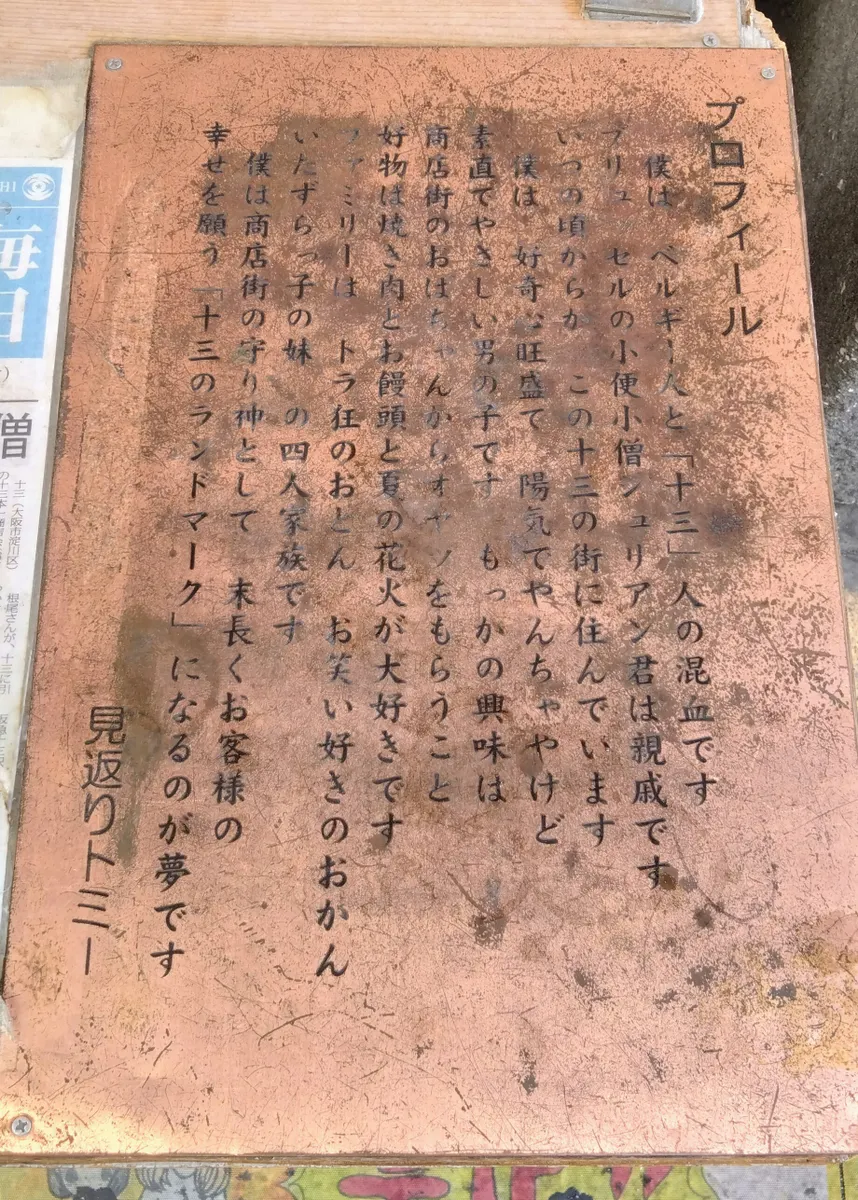 プロフィール
僕は ベルギー人と「十三」人の混血です
ブリュッセルの小便小僧ジュリアン君は親戚です
いつの頃からか この十三の街に住んでいます
僕は 好奇心旺盛で 陽気でやんちゃやけど
素直でやさしい男の子です もっかの興味は
商店街のおばちゃんからオヤツをもらうこと
好物は焼き肉とお饅頭と夏の花火が大好きです
ファミリーは トラ狂のおとん お笑い好きのおかん
いたずらっ子の妹 の四人家族です
僕は商店街の守り神として 末長くお客様の
幸せを願う「十三のランドマーク」になるのが夢です
見返りトミー
毎日
僧
十三(大阪市淀川区)
根尾さんが、十三に引